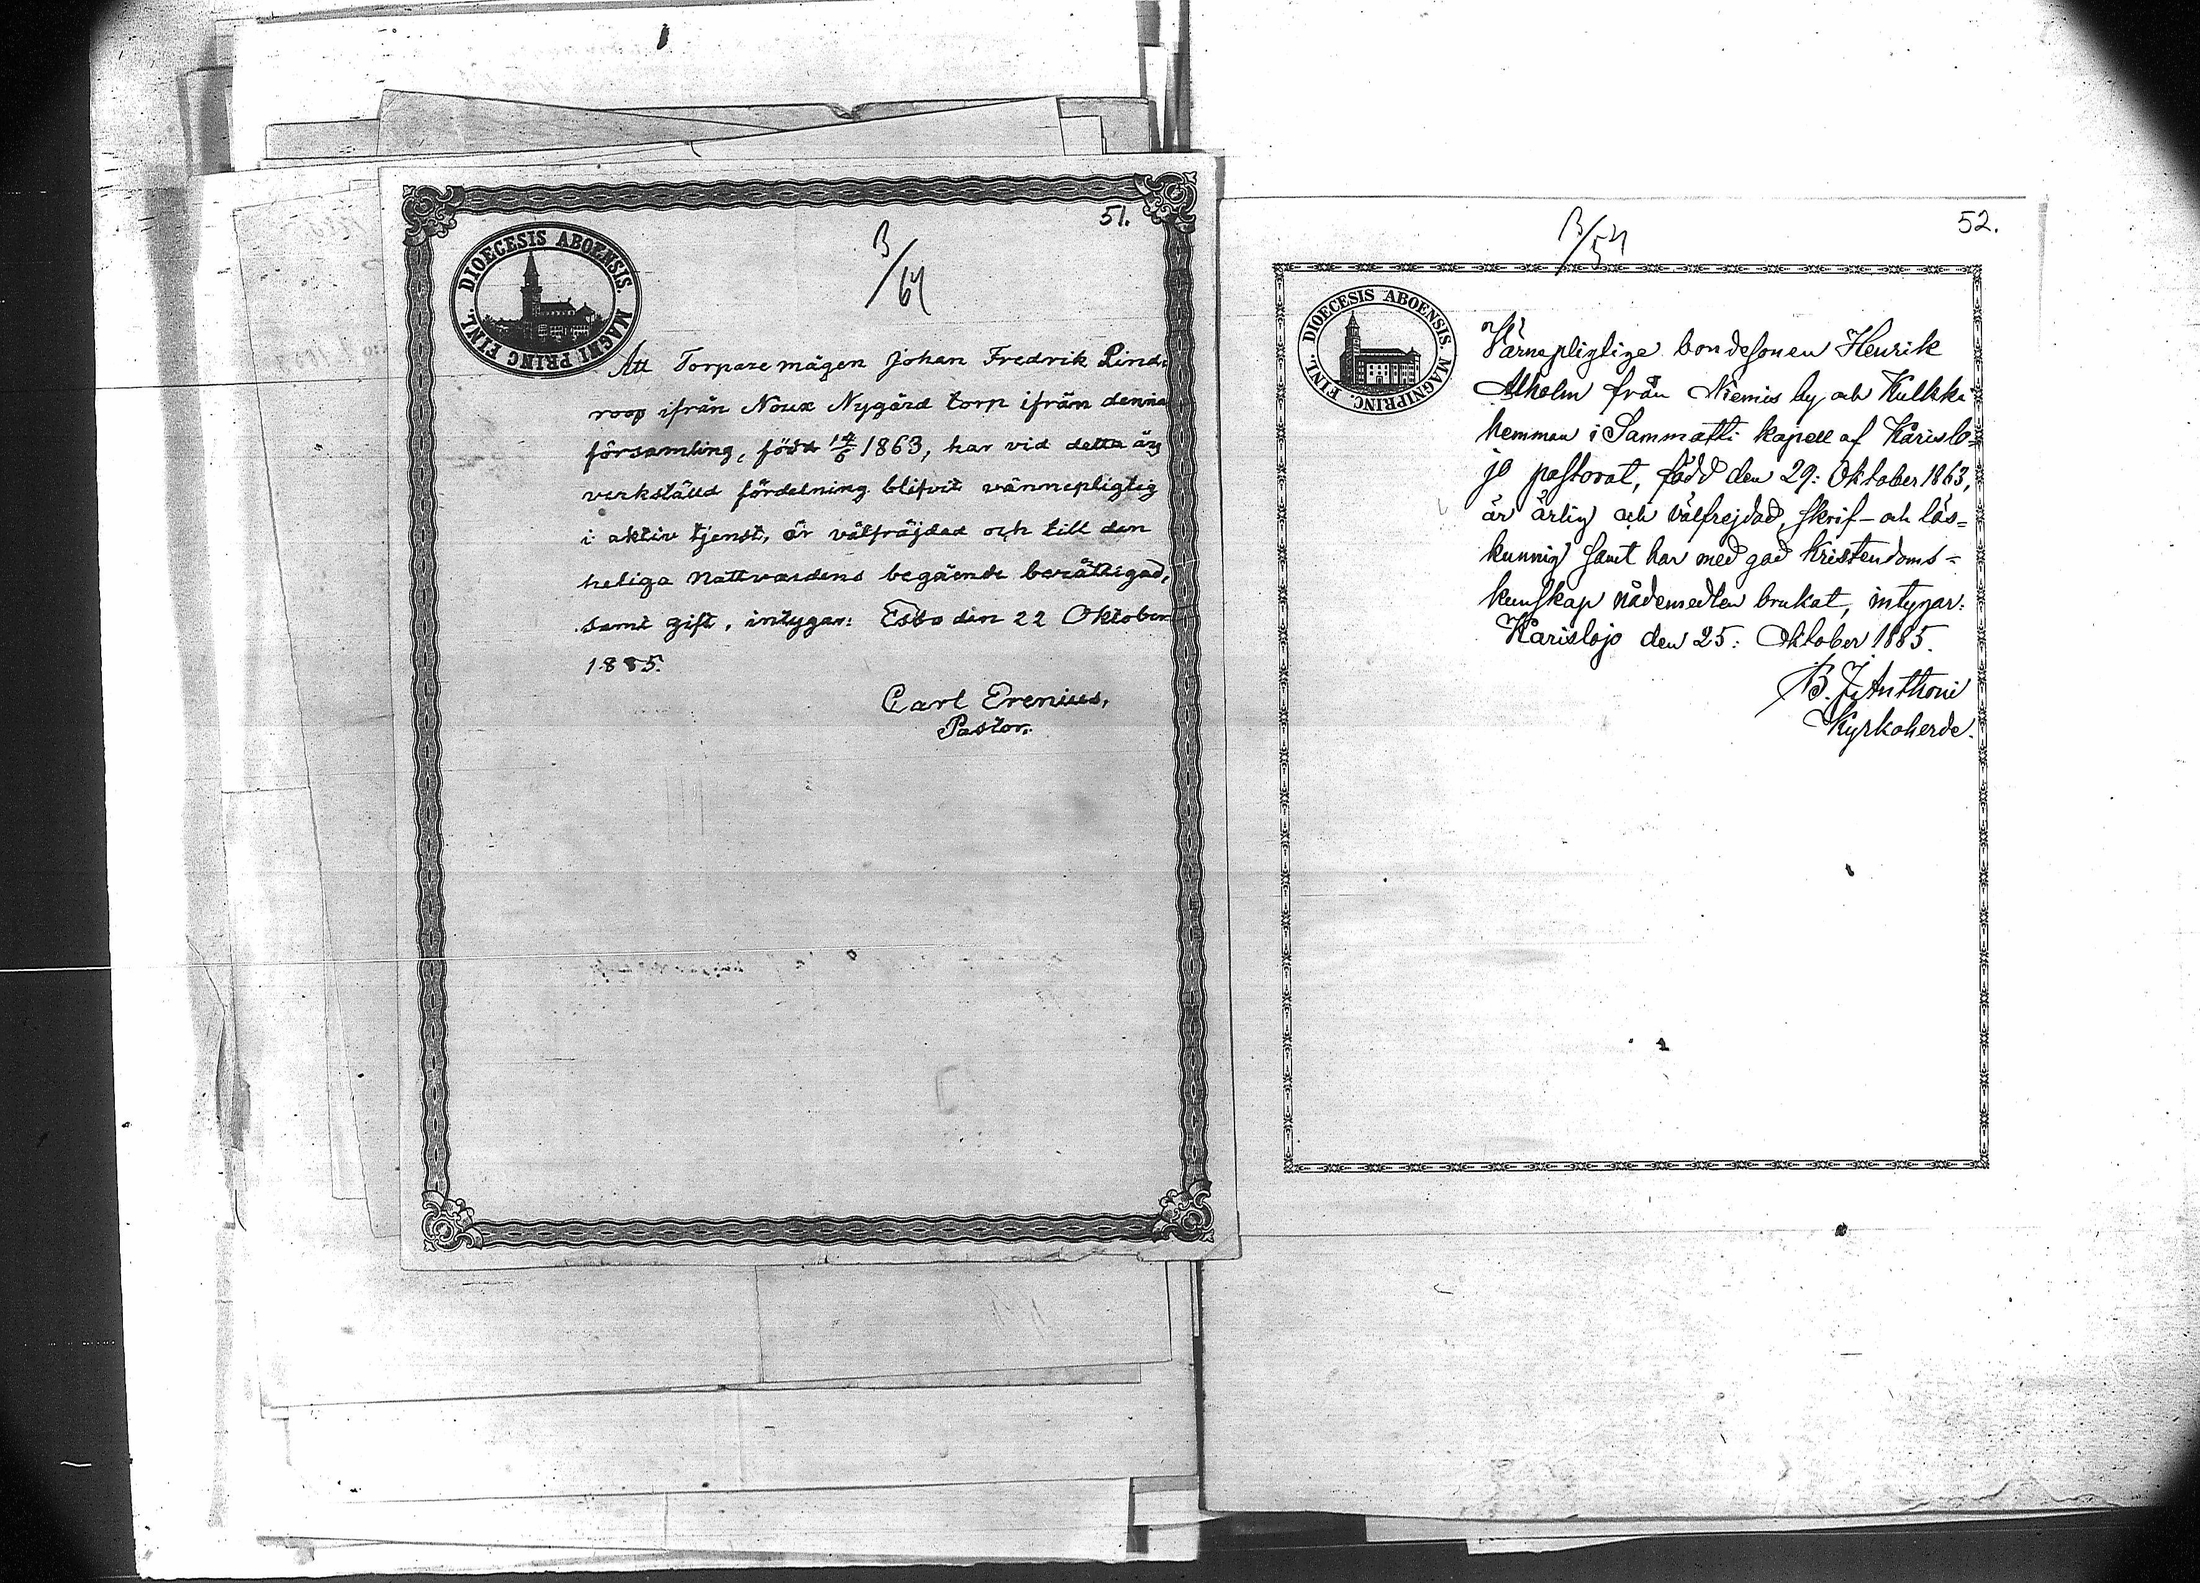 51.
B/64
DIOECESIS ABOENSIS. MAGNI PRINC. FINL.
Att Torparemågen Johan Fredrik Lind-
roos ifrån Noux Nygård torp ifrån denna
församling, född 14/6 1863, har vid detta år
verkställd fördelning blifvit värnepligtig
i aktiv tjenst, är välfräjdad och till den
heliga Nattvardens begående berättigad,
samt gift, intygar: Esbo den 22 Oktober
1885.
Carl Erenius,
Pastor.
52.
B/54
DIOECESIS ABOENSIS. MAGNI PRINC. FINL.
Värnepligtige bondesonen Henrik
Alholm från Niemis by och Kulkki
hemman i Sammatti kapell af Karislo=
jo pastorat, född den 29: Oktober 1863,
är ärlig och välfrejdad, skrif- och läs=
kunnig samt har med god kristendoms=
kunskap nådemedlen brukat, intygar:
Karislojo den 25: Oktober 1885.
B. J. Anthoni
Kyrkoherde.